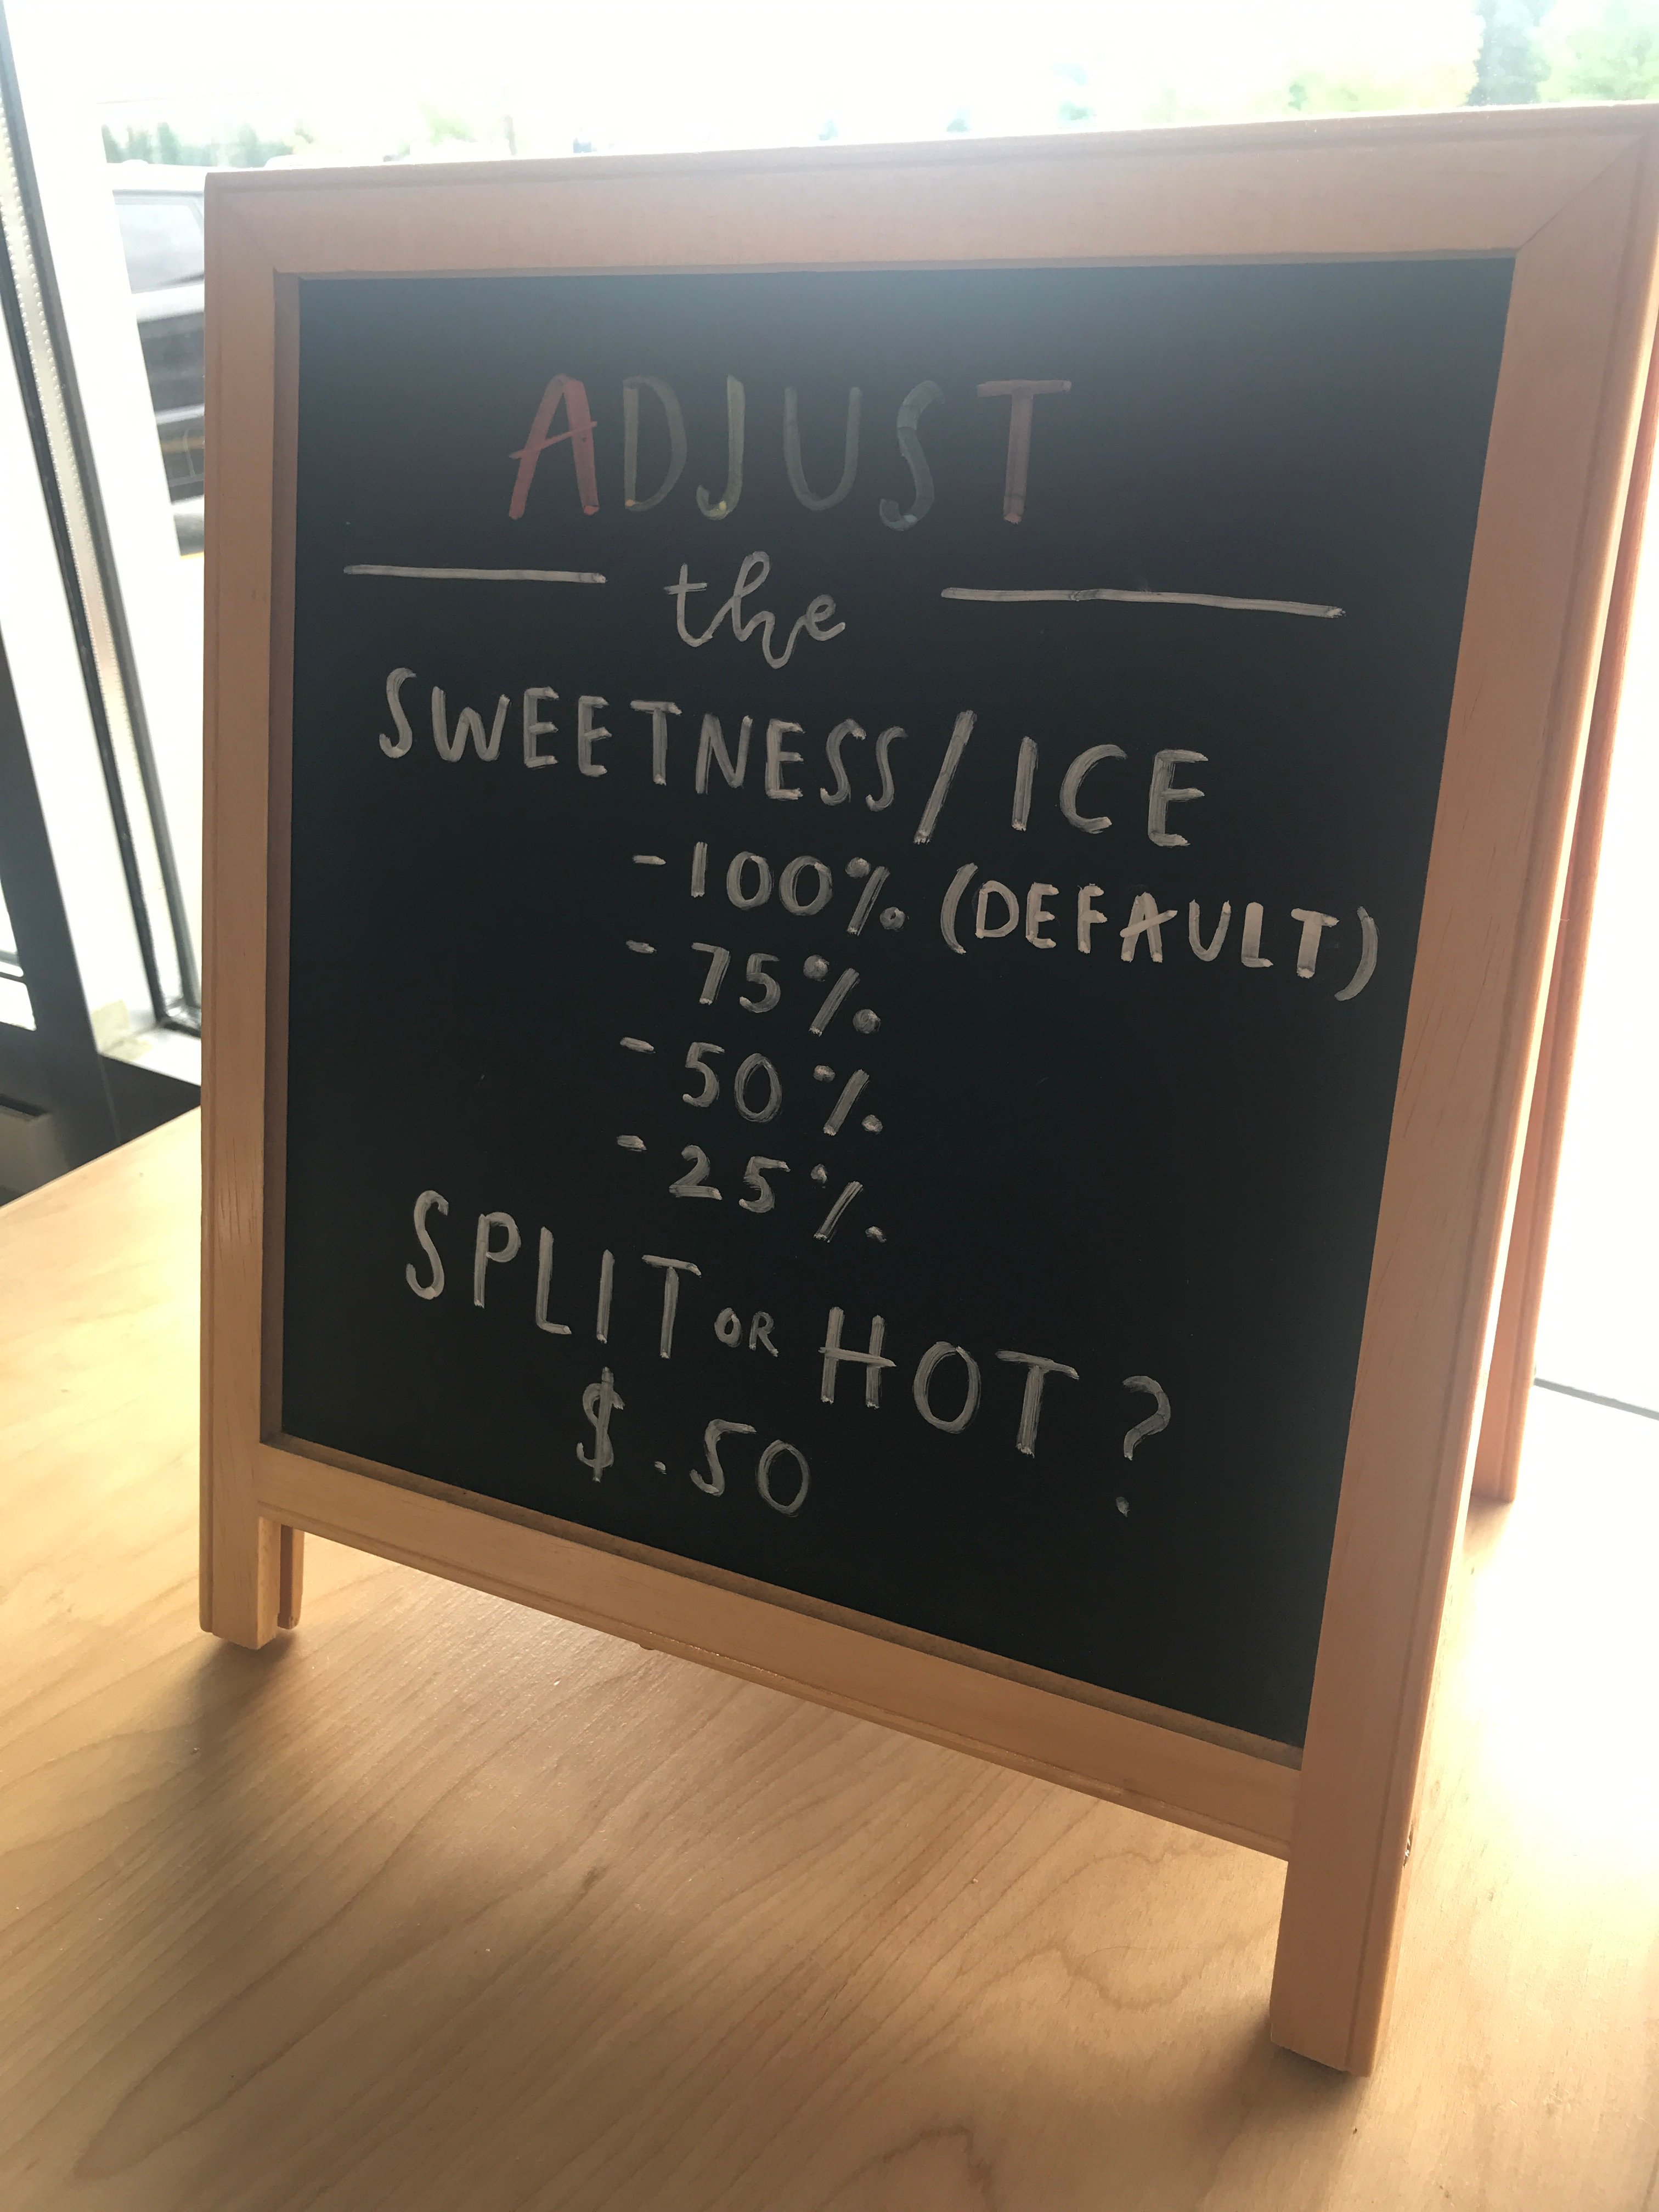 ADJUST
the
SWEETNESS/ICE
-100% (DEFAULT)
-75%
-50%
-25%
SPLIT OR HOT?
$.50